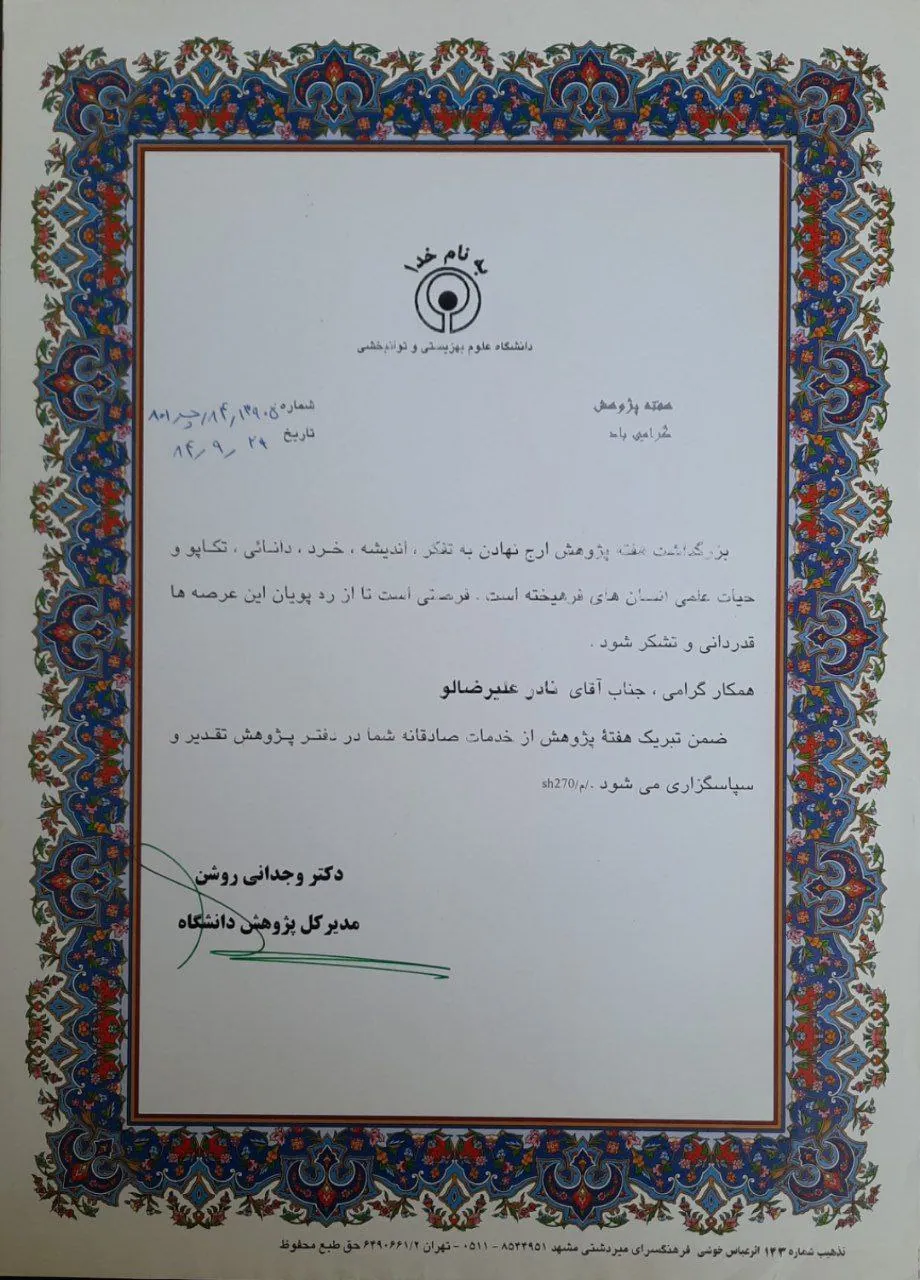 به نام خدا
دانشگاه علوم بهزیستی و توانبخشی
هفته پژوهش
گرامی باد
شماره ۸۰۱/د/۸۴/۱۳۹۰۵
تاریخ ۸۴/۹/۲۹
بزرگداشت هفته پژوهش ارج نهادن به تفکر ، اندیشه ، خرد ، دانائی ، تکاپو و
حیات علمی انسان های فرهیخته است . فرصتی است تا از ره پویان این عرصه ها
قدردانی و تشکر شود .
همکار گرامی ، جناب آقای نادر علیرضالو
ضمن تبریک هفتۀ پژوهش از خدمات صادقانه شما در دفتر پژوهش تقدیر و
سپاسگزاری می شود ./م/sh270
دکتر وجدانی روشن
مدیرکل پژوهش دانشگاه
تذهیب شماره ۱۲۳ اثرعباس خوشی فرهنگسرای میردشتی مشهد ۸۵۴۴۹۵۱ - ۰۵۱۱ - تهران ۶۴۹۰۶۶۱/۲ حق طبع محفوظ